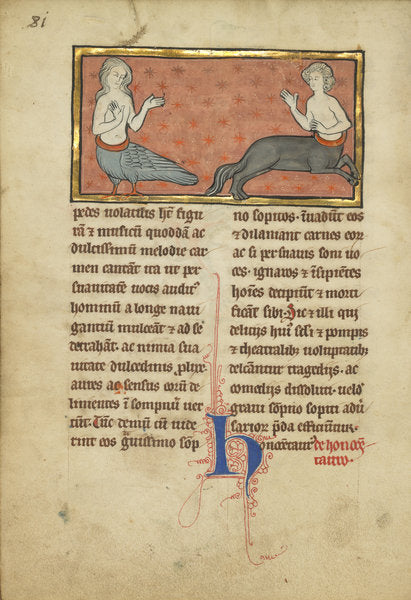 81
pedes uolatilis hñt figu
rã ⁊ musicũ quoddã ac
dulcissimũ melodie car
men cantãt ita ut per
suauitatẽ uocis audit⁹
hominũ a longe naui
gantiũ mulceãt ⁊ ad se
detrahãt. ac nimia sua
uitate dulcedinis
aures ac sensus eorũ de
linientes ĩ sompniũ uer
tũt. Tũc demũ cũ uide
rint eos g̃uissimo sop̃
no sopitos. ĩuadũt eos
⁊ dilaniant carnes eor̃
ac si persuauis soni uo
ces. ignaros ⁊ ĩsipiẽtes
hoĩes decipiũt ⁊ morti
ficant sibi. Sic ⁊ illi qui
delitiis hui⁹ sc̃li ⁊ pompis
⁊ theatralib; uoluptatib;
delectantur tragediis. ac
comediis dissoluti. uelo
graui sop̃no sopiti adũ
sarior̃ p̃da efficiuntur.
Honocẽtaur⁹ de honocẽ
tauro.